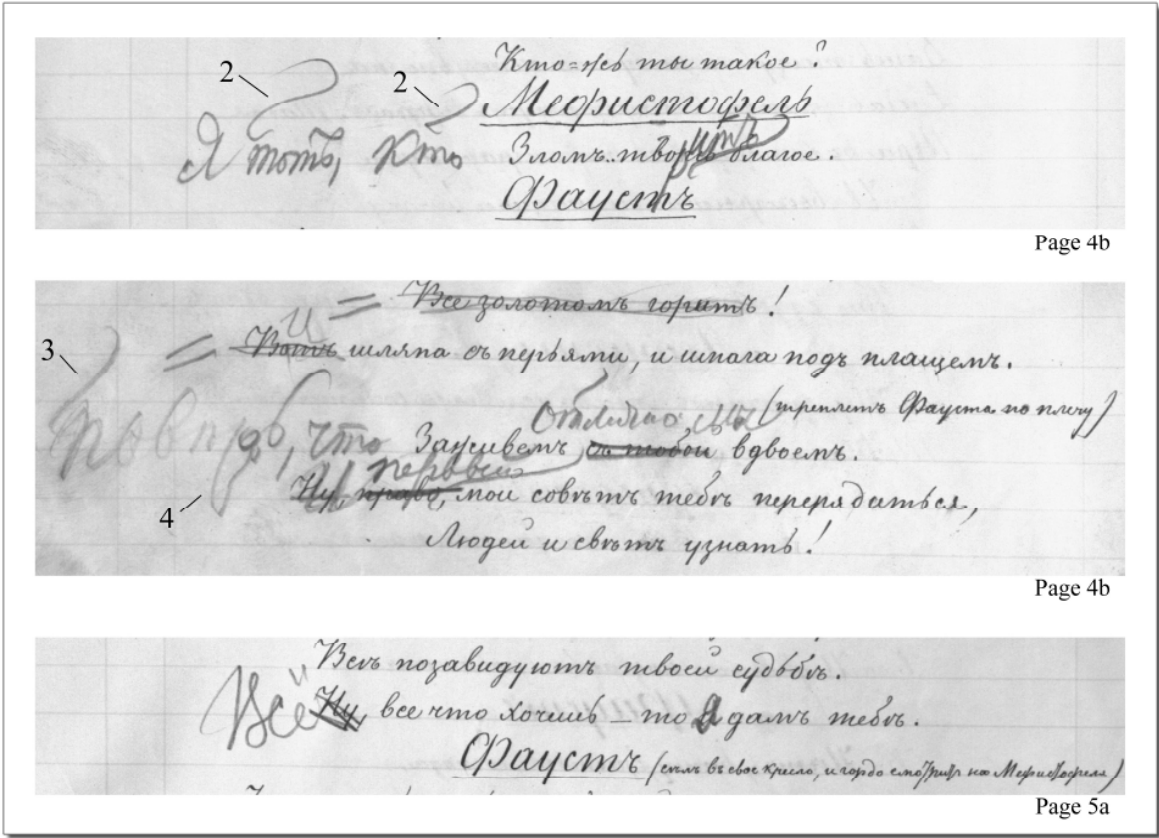 Кто=жъ ты такое?
2
2
Мефистофель
Я тотъ, кто Зломъ.. творитъ благое.
Фаустъ
Page 4b
= Все золотомъ горитъ!
И
= Вотъ шляпа съ перьями, и шпага подъ плащемъ.
3
Отлично, мы (треплетъ Фауста по плечу)
что Заживемъ, съ тобой вдвоемъ.
первый
4
Ну, право, мой совѣтъ тебѣ перерядиться,
Людей и свѣтъ узнать!
Page 4b
Всѣ позавидуютъ твоей судьбѣ.
Всё Ну, все что хочешь – то я дамъ тебѣ.
Фаустъ (сѣлъ въ свое кресло, и гордо смотритъ на Мефистофеля)
Page 5a